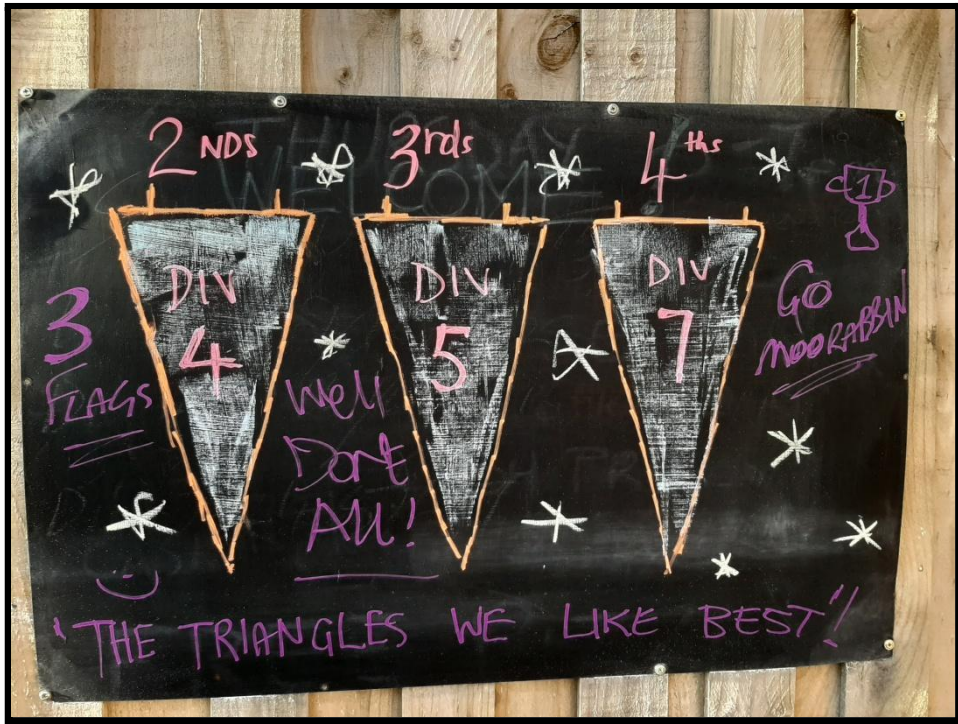 2NDS 3rds 4ths
1
DIV
4
DIV
5
DIV
7
3
FLAGS
Well
Done
All!
GO
MOORABBIN
"THE TRIANGLES WE LIKE BEST"!